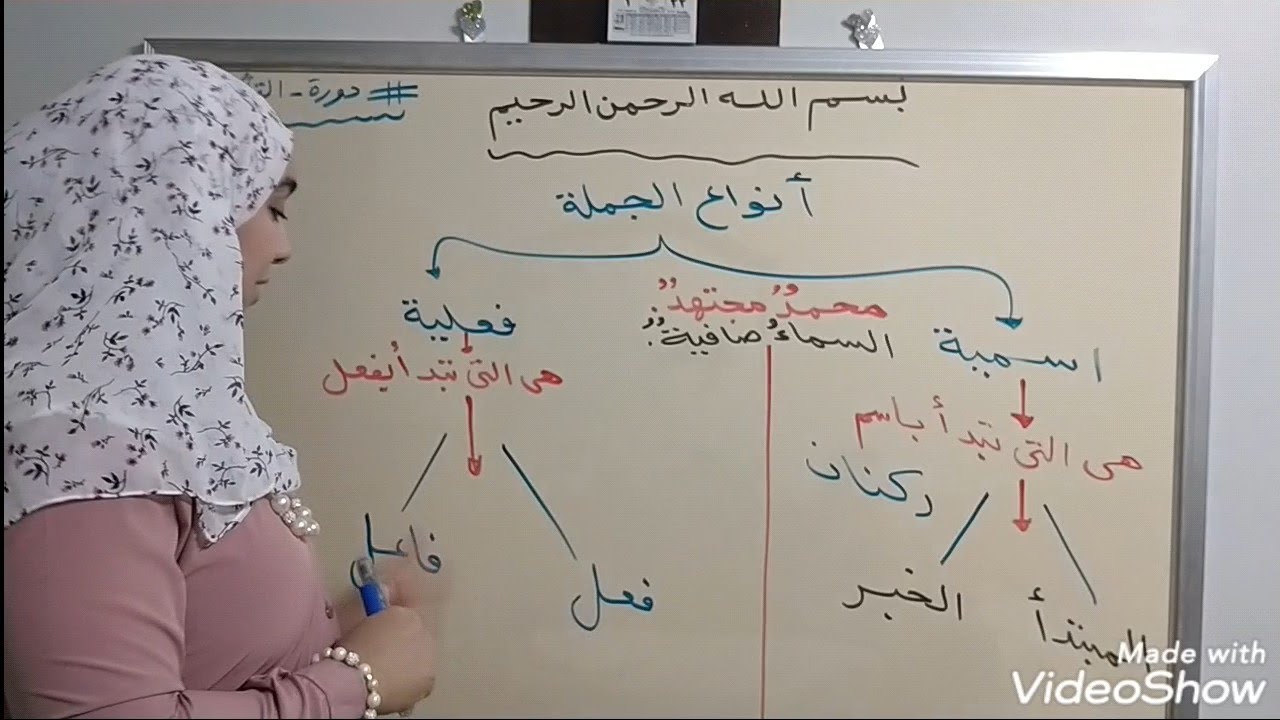 بسم الله الرحمن الرحيم
# دورة -
أنواع الجملة
اسمية
فعلية
محمدٌ مجتهدٌ.
السماءُ صافيةٌ.
هى التى تبدأ باسم
هى التى تبدأ بفعل
ركنان
المبتدأ
الخبر
فعل
فاعل
Made with
VideoShow